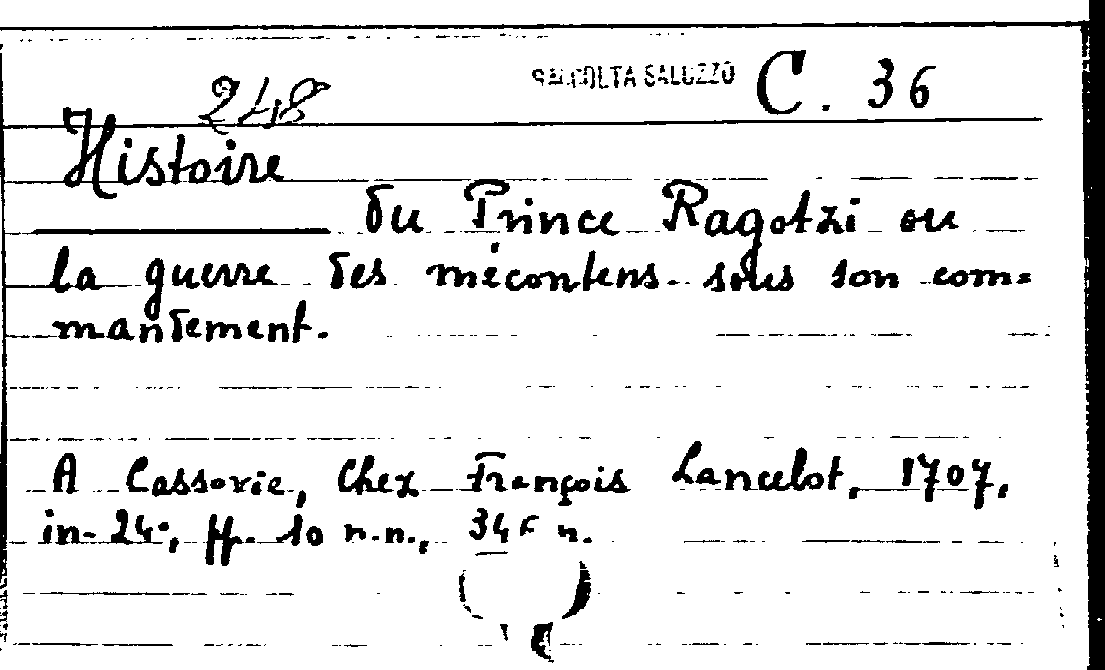 248 RACCOLTA SALUZZO C. 36
Histoire
du Prince Ragotzi ou
la guerre des mécontens sous son com=
mandement.
A Cassovie, Chez François Lancelot, 1707,
in-24°, pp. 10 n.n., 346 n.